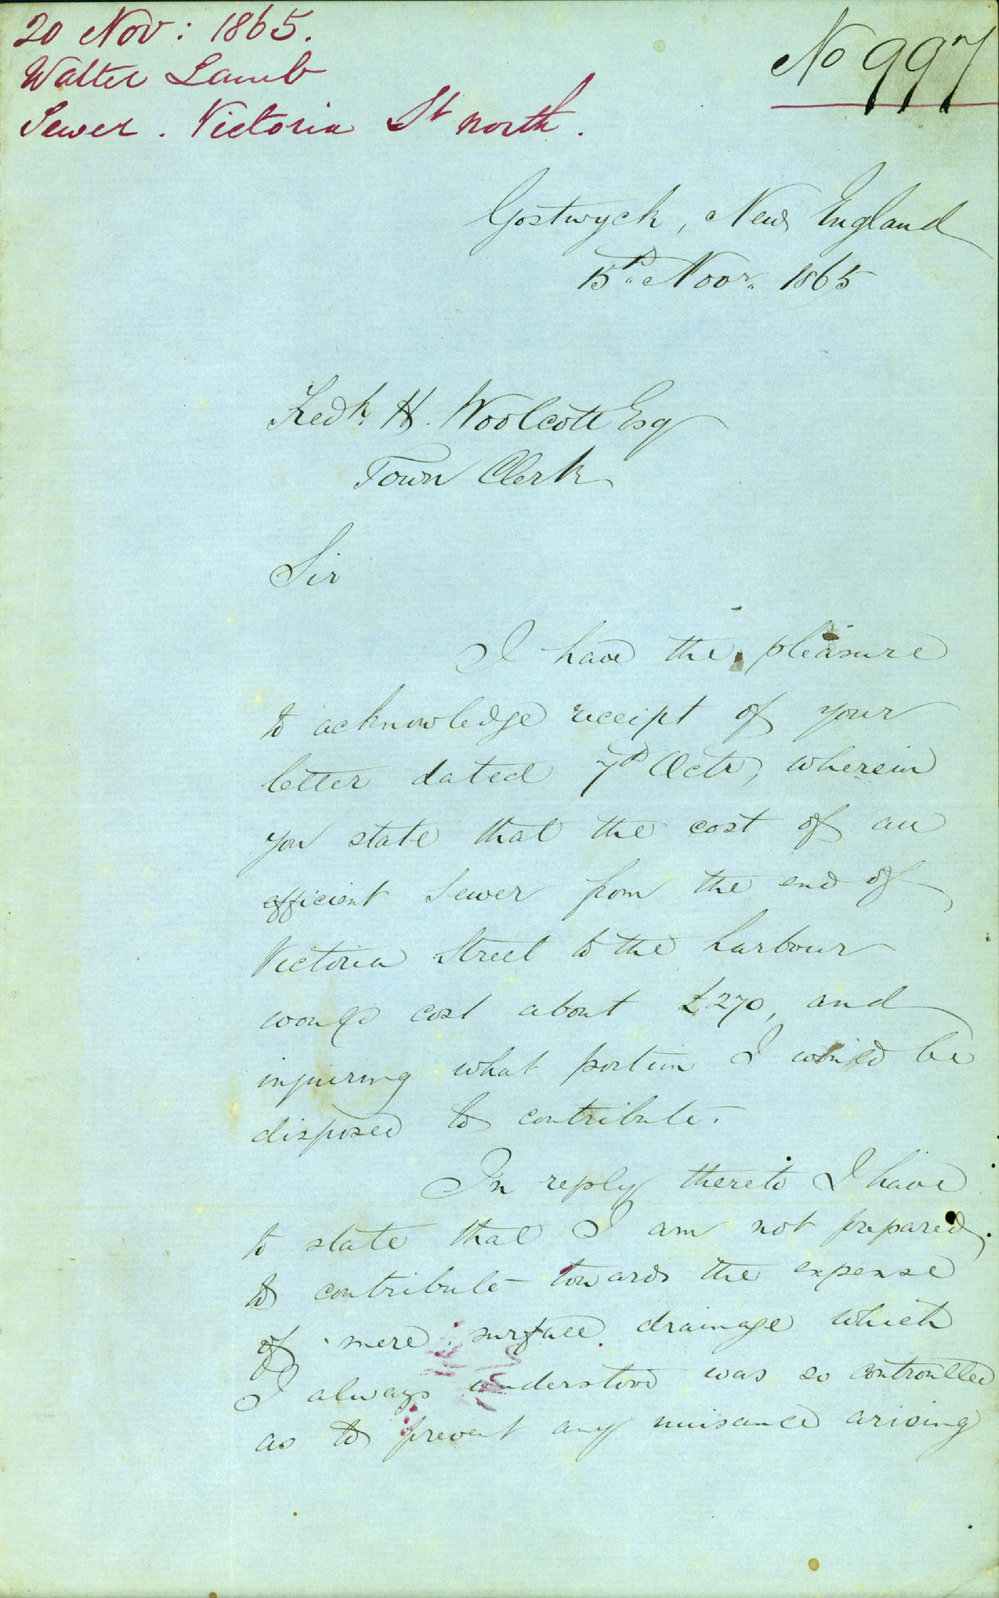 20 Nov: 1865.
Walter Lamb
Sewer. Victoria St north.
No 997
Gostwyck, New England
15th Novr. 1865
Fredk. H. Woolcott Esq
Town Clerk
Sir
I have the pleasure
to acknowledge receipt of your
letter dated 7th Octr, wherein
you state that the cost of an
efficient sewer from the end of
Victoria Street to the harbour
would cost about £270, and
inquiring what portion I would be
disposed to contribute.
In reply thereto I have
to state that I am not prepared
to contribute towards the expense
of mere surface drainage which
I always understood was so controlled
as to prevent any nuisance arising